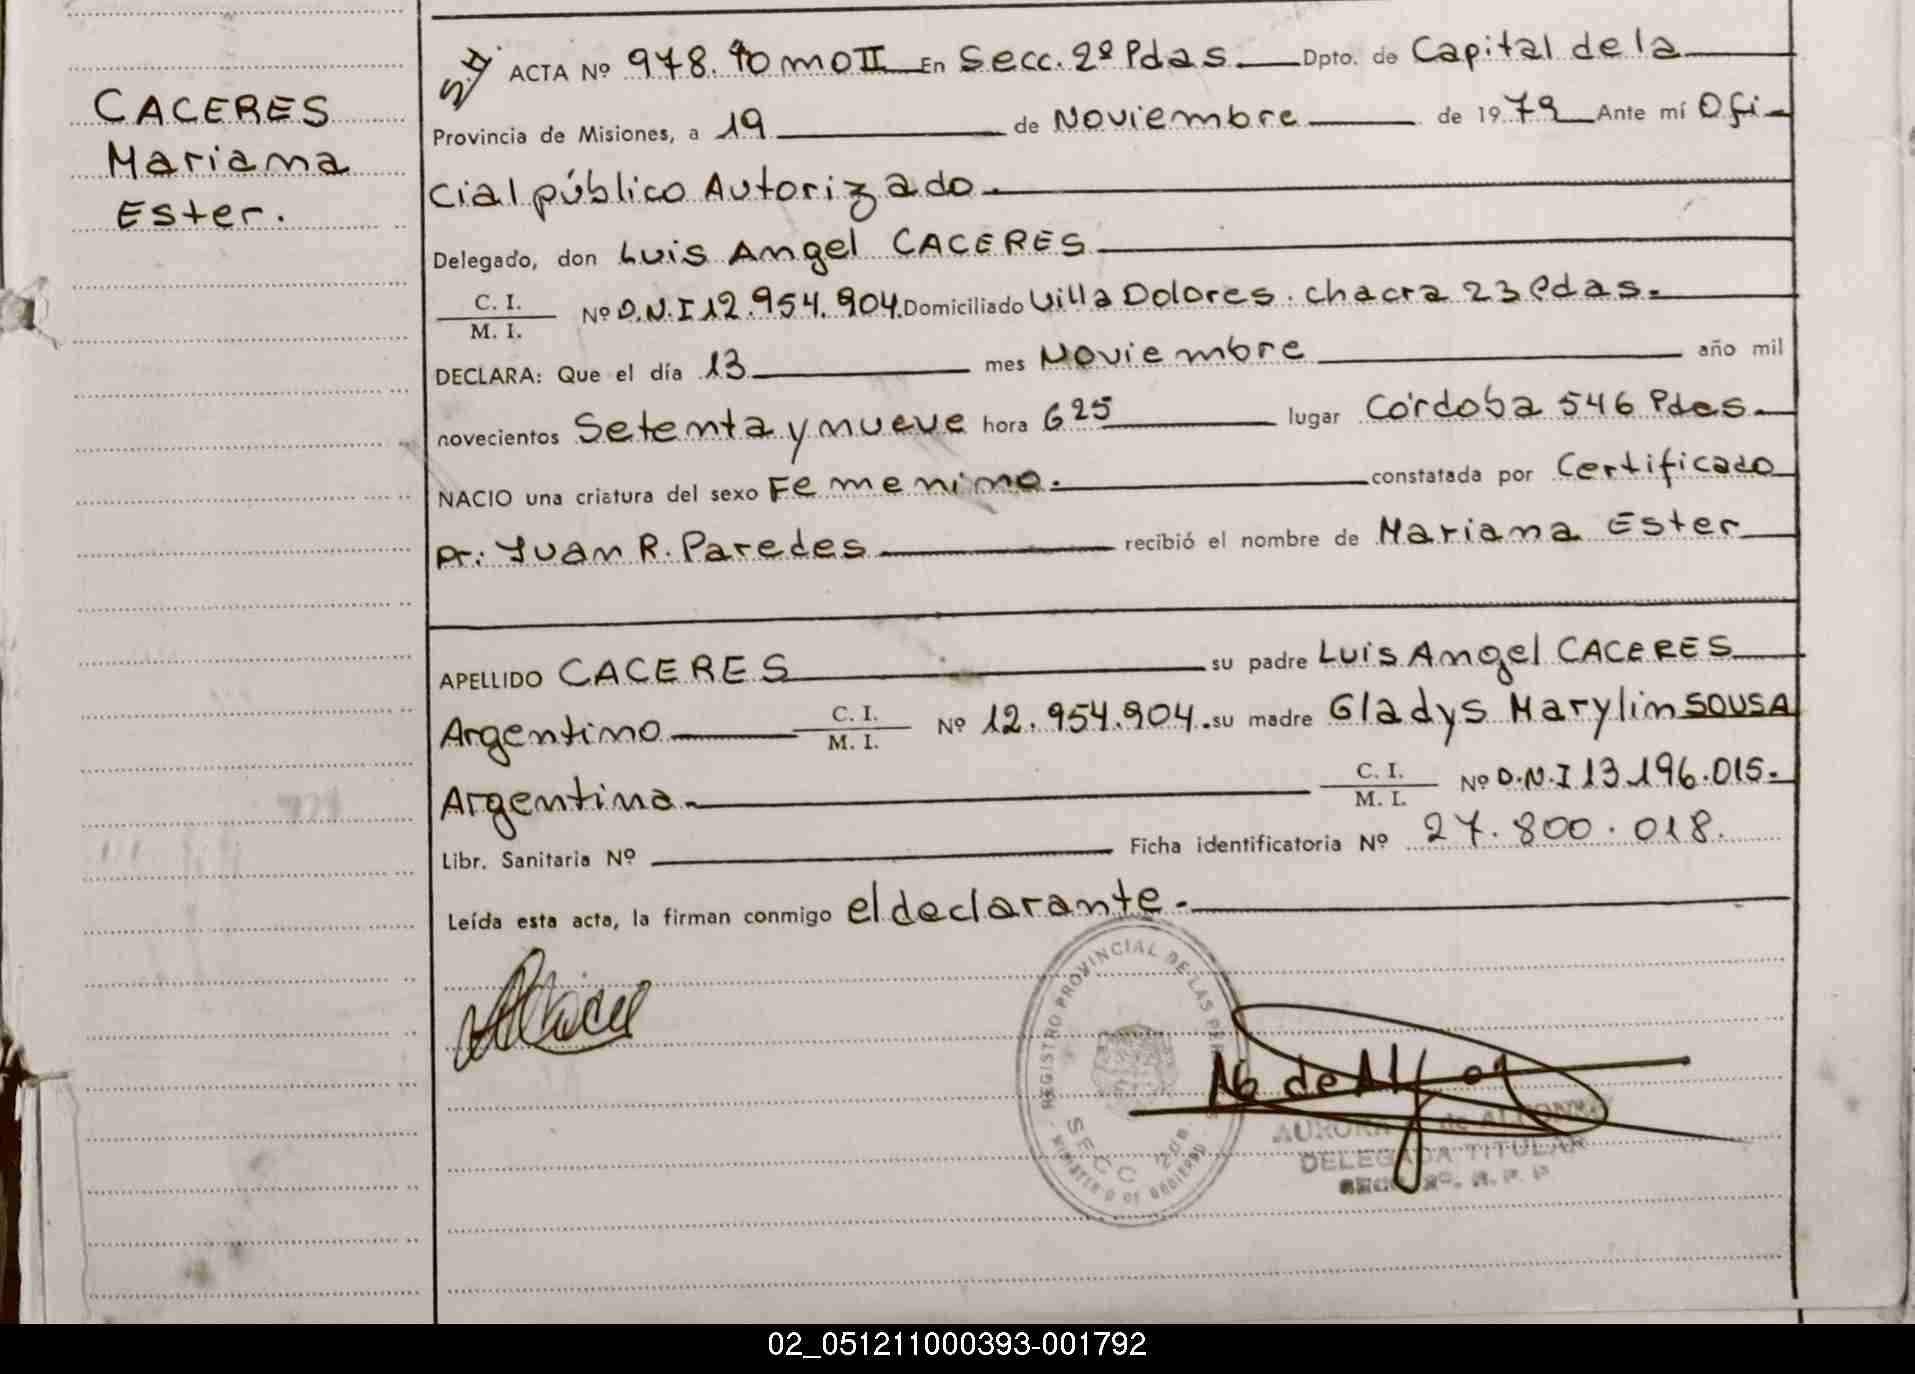 CACERES
Mariana
Ester.
S.A. ACTA Nº 978. Tomo II En Secc. 2º Pdas. Dpto. de Capital de la
Provincia de Misiones, a 19 de Noviembre de 1979 Ante mí Ofi-
cial público Autorizado.
Delegado, don Luis Angel CACERES
C. I.
M. I. Nº D.N.I 12.954.904. Domiciliado Villa Dolores. chacra 23 Pdas.
DECLARA: Que el día 13 mes Noviembre año mil
novecientos Setenta y nueve hora 6 25 lugar Córdoba 546 Pdas.
NACIO una criatura del sexo Femenino. constatada por Certificado
Dr: Juan R. Paredes recibió el nombre de Mariana Ester
APELLIDO CACERES su padre Luis Angel CACERES
Argentino C. I.
M. I. Nº 12.954.904. su madre Gladys Marylin SOUSA
Argentina. C. I.
M. I. Nº D.N.I 13.196.015.
Libr. Sanitaria Nº Ficha identificatoria Nº 27.800.018.
Leída esta acta, la firman conmigo el declarante.
REGISTRO PROVINCIAL DE LAS PER
SECC 2da.
MINISTERIO DE GOBIERNO
AURORA de
DELEGADA TITULAR
SECC. 2º. R. P. P
02_051211000393-001792